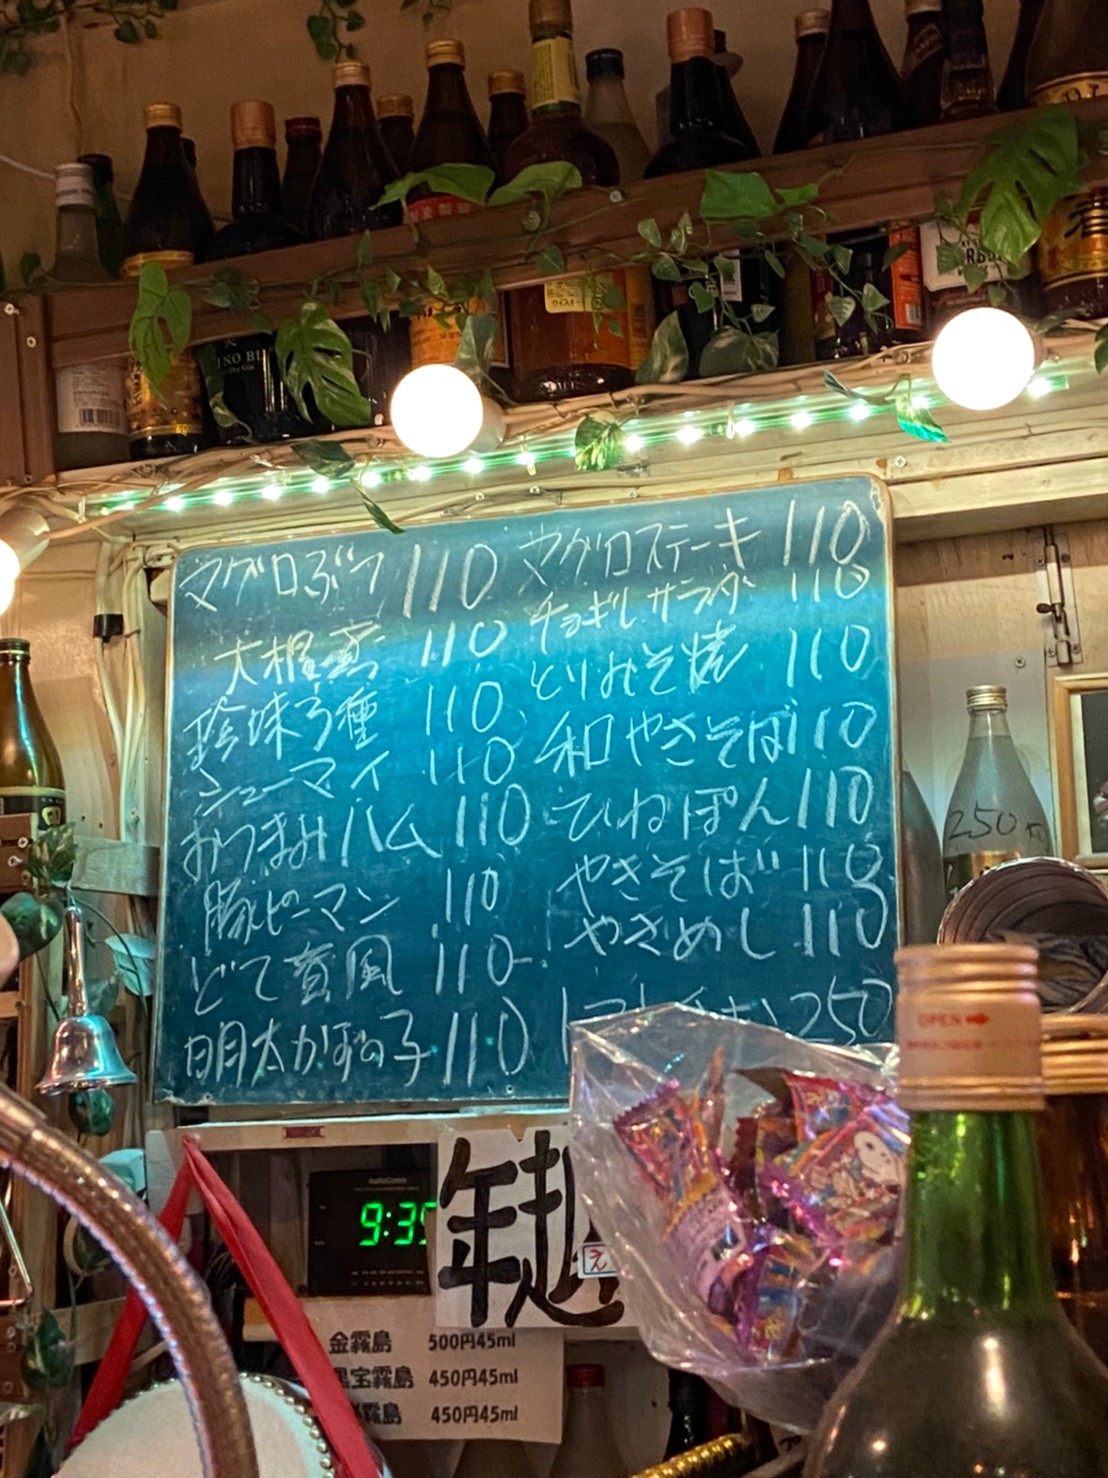 マグロぶつ 110
大根煮 110
珍味3種 110
シューマイ 110
おつまみハム 110
豚ピーマン 110
どて煮風 110
明太かずの子 110
マグロステーキ 110
チョギレサラダ 110
とりみそ焼 110
和やきそば 110
ひねぽん 110
やきそば 110
やきめし 110
250
250
OPEN
9:35
年越
え
金霧島 500円45ml
黒宝霧島 450円45ml
霧島 450円45ml